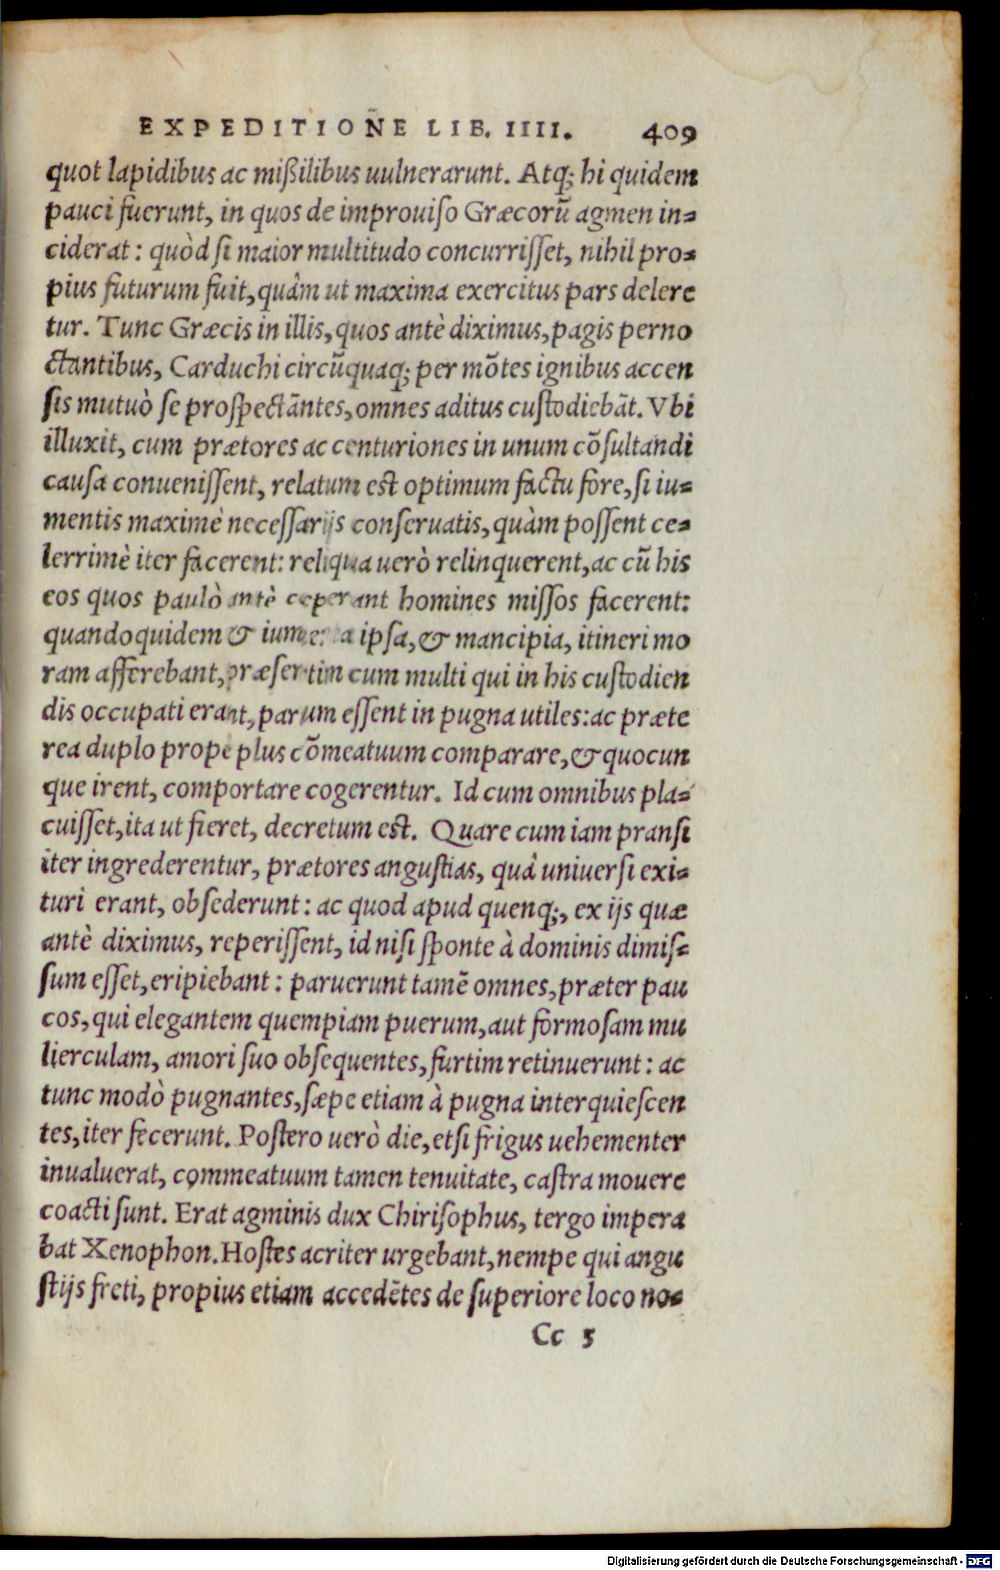 EXPEDITIONE LIB. IIII. 409
quot lapidibus ac mißilibus uulnerarunt. Atq; hi quidem
pauci fuerunt, in quos de improuiſo Græcorũ agmen in-
ciderat: quòd ſi maior multitudo concurriſſet, nihil pro-
pius futurum fuit, quàm ut maxima exercitus pars delere
tur. Tunc Græcis in illis, quos antè diximus, pagis perno
ctantibus, Carduchi circũquaq; per mõtes ignibus accen
ſis mutuò ſe proſpectãntes, omnes aditus cuſtodiebãt. Vbi
illuxit, cum prætores ac centuriones in unum cõſultandi
cauſa conueniſſent, relatum eſt optimum factu fore, ſi iu-
mentis maximè neceſſarijs conſeruatis, quàm poſſent ce-
lerrimè iter facerent: reliqua uerò relinquerent, ac cũ his
eos quos paulò antè ceperant homines miſſos facerent:
quandoquidem & iumenta ipſa, & mancipia, itineri mo
ram afferebant, præſertim cum multi qui in his cuſtodien
dis occupati erant, parum eſſent in pugna utiles: ac præte
rea duplo prope plus cõmeatuum comparare, & quocun
que irent, comportare cogerentur. Id cum omnibus pla-
cuiſſet, ita ut fieret, decretum eſt. Quare cum iam pranſi
iter ingrederentur, prætores anguſtias, quà uniuerſi exi-
turi erant, obſederunt: ac quod apud quenq;, ex ijs quæ
antè diximus, reperiſſent, id niſi ſponte à dominis dimiſ-
ſum eſſet, eripiebant: paruerunt tamẽ omnes, præter pau
cos, qui elegantem quempiam puerum, aut formoſam mu
lierculam, amori ſuo obſequentes, furtim retinuerunt: ac
tunc modò pugnantes, ſæpe etiam à pugna interquieſcen
tes, iter fecerunt. Poſtero uerò die, etſi frigus uehementer
inualuerat, commeatuum tamen tenuitate, caſtra mouere
coacti ſunt. Erat agminis dux Chiriſophus, tergo impera
bat Xenophon. Hoſtes acriter urgebant, nempe qui angu
ſtijs freti, propius etiam accedẽtes de ſuperiore loco no-
Cc 5
Digitalisierung gefördert durch die Deutsche Forschungsgemeinschaft - DFG